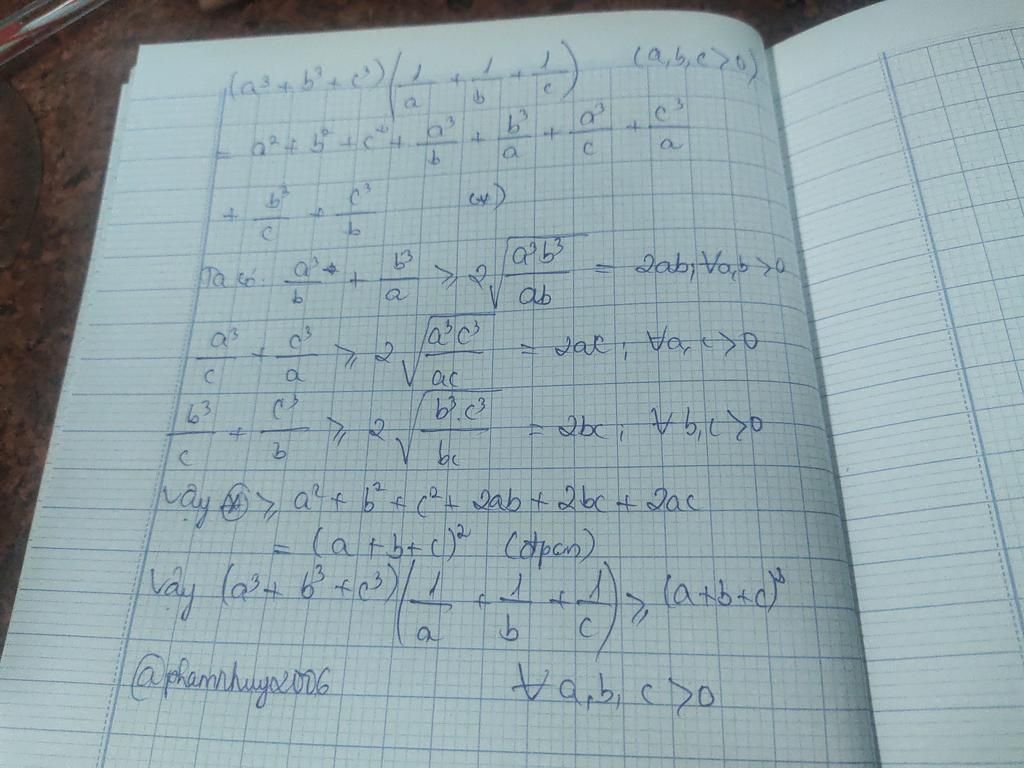 (a³ + b³ + c³)(1/a + 1/b + 1/c) (a, b, c > 0)
= a² + b² + c² + a³/b + b³/a + a³/c + c³/a
+ b³/c + c³/b (*)
Ta có: a³/b + b³/a ≥ 2√(a³b³/ab) = 2ab, ∀a,b > 0
a³/c + c³/a ≥ 2√(a³c³/ac) = 2ac; ∀a, c > 0
b³/c + c³/b ≥ 2√(b³.c³/bc) = 2bc; ∀ b, c > 0
Vậy (*) ≥ a² + b² + c² + 2ab + 2bc + 2ac
= (a + b + c)² (đpcm)
Vậy (a³ + b³ + c³)(1/a + 1/b + 1/c) ≥ (a+b+c)²
@phamnhuy2006 ∀ a, b, c > 0